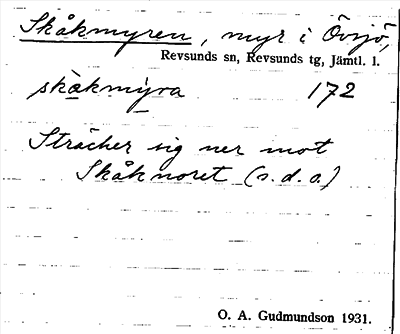 Skåkmyren, myr i Övsjö,
Revsunds sn, Revsunds tg, Jämtl. l.
skàkmy̌ra 172
Strächer sig ner mot
Skåknoret (s.d.o.)
O. A. Gudmundson 1931.